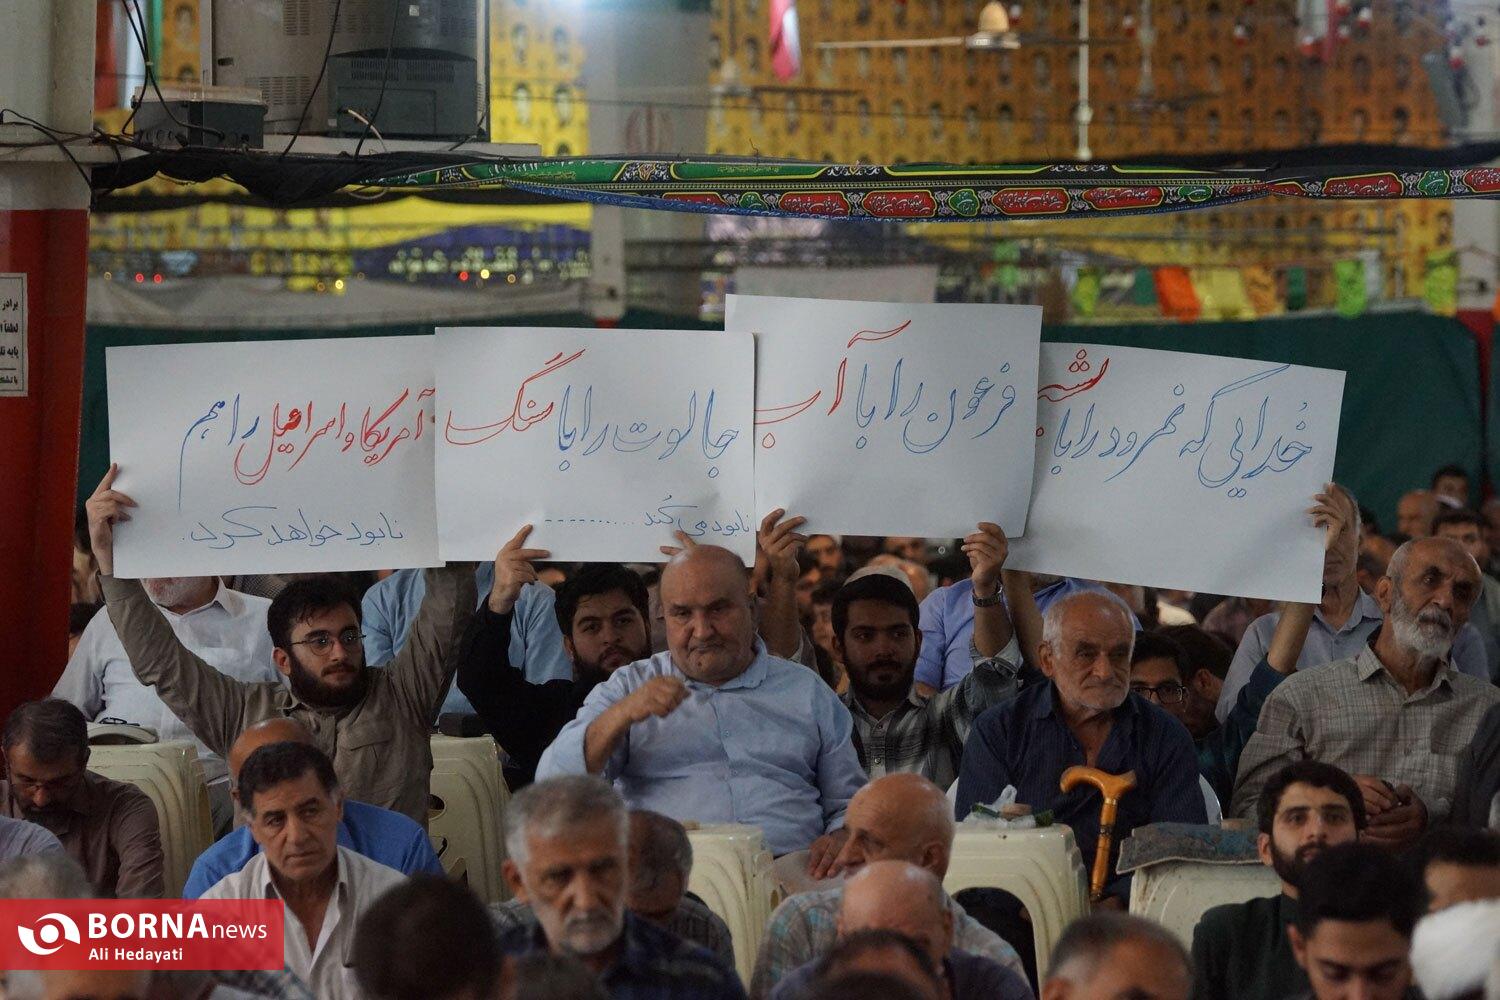 خدایی که نمرود را با پشه
فرعون را با آب
جالوت را با سنگ
نابود می کند ...........
آمریکا و اسرائیل را هم
نابود خواهد کرد.
برادر
لطفاً
پایه
BORNAnews
Ali Hedayati